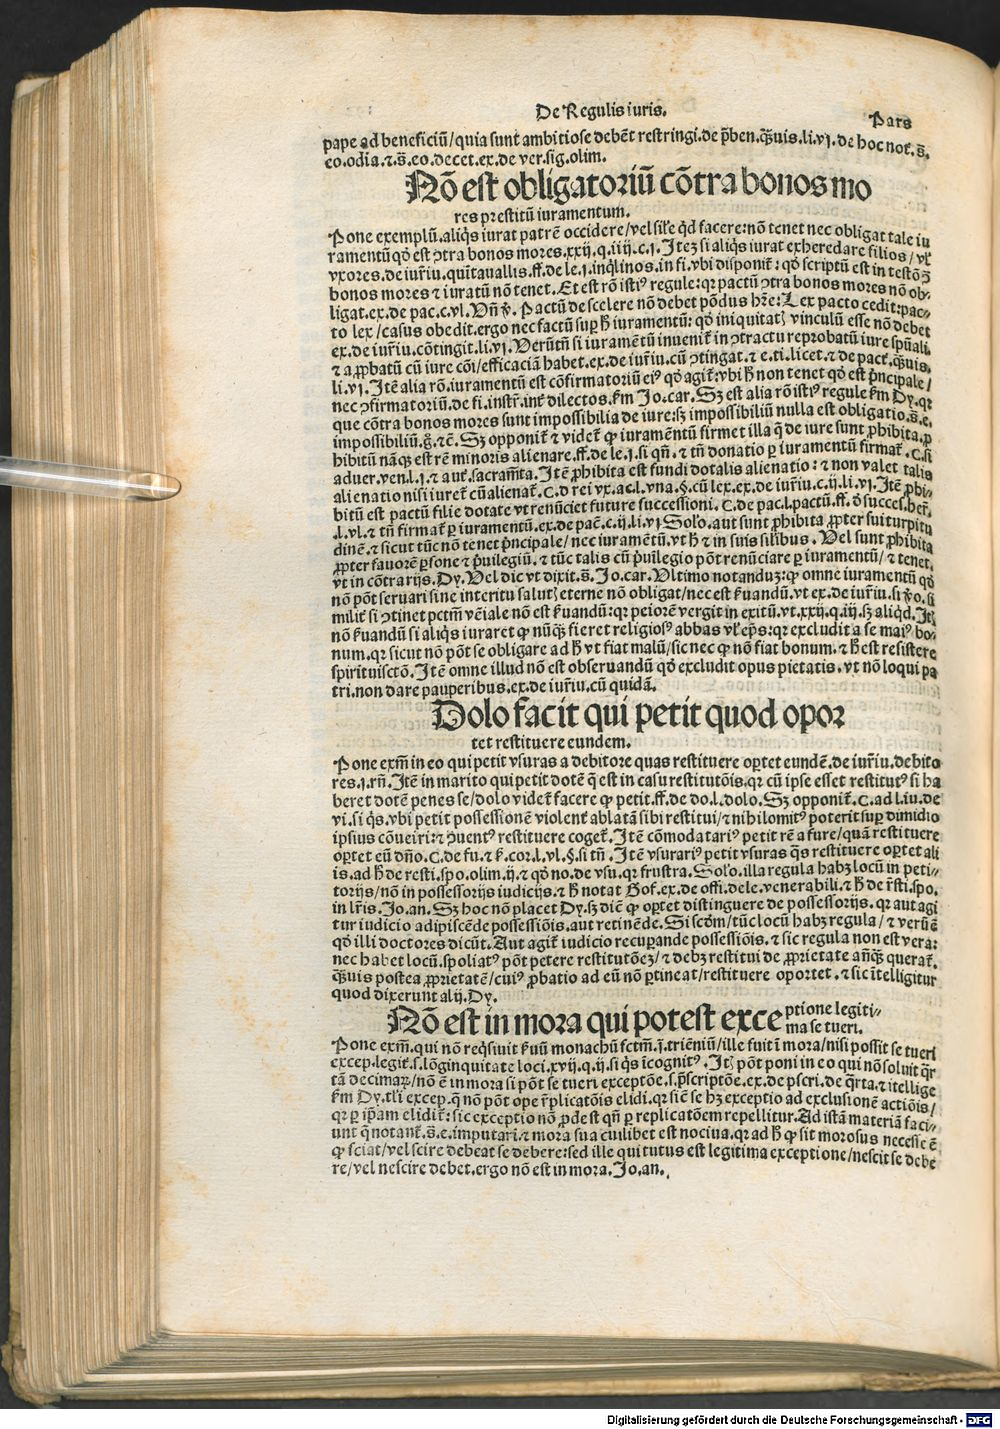 De Regulis iuris.
Pars
pape ad beneficiū/quia sunt ambitiose debēt restringi.de p̄ben.q̄uis.li.vj.de hoc not̄.s̄.
eo.odia.⁊.s̄.eo.decet.ex.de ver.sig.olim.
Nō est obligatoriū cōtra bonos mo
res prestitū iuramentum.
Pone exemplū.aliq̄s iurat patrē occidere/vel sil̄e qd̄ facere:nō tenet nec obligat tale iu
ramentū qd̄ est ꝯtra bonos mores.xxij.q.iiij.c.j.Itez si aliq̄s iurat exheredare filios/vl̄
vxores.de iur̄iu.quītauallis.ff.de le.j.inq̄linos.in fi.vbi disponit̄:qd̄ scriptū est in testō
bonos mores ⁊ iuratū nō tenet.Et est rō isti⁹ regule:qꝛ pactū ꝯtra bonos mores nō ob⸗
ligat.ex.de pac.c.vl.Vn̄ v̄.Pactū de scelere nō debet pōdus hr̄e:Lex pacto cedit:pac⸗
to lex/casus obedit.ergo nec factū suꝑ h̄ iuramentū:qd̄ iniquitatꝭ vinculū esse nō debet
ex.de iur̄iu.cōtingit.li.vj.Verūtn̄ si iuramētū inuenit̄ in ꝯtractu reprobatū iure spūali.
⁊ a ꝓbatū cū iure cōi/efficaciā habet.ex.de iur̄iu.cū ꝯtingat.⁊ e.ti.licet.⁊ de pact̄.q̄uis.
li.vj.Itē alia rō.iuramentū est cōfirmatoriū ei⁹ qd̄ agit̄:vbi h̄ non tenet qd̄ est p̄ncipale/
nec ꝯfirmatoriū.de fi.instr̄.int̄ dilectos.km̄ Jo.car.Sꝫ est alia rō isti⁹ regule km̄ Dy.qꝛ
que cōtra bonos mores sunt impossibilia de iure:sꝫ impossibiliū nulla est obligatio.s̄.e.
impossibiliū.ḡ.⁊c̄.Sꝫ opponit̄ ⁊ videt̄ ꝙ iuramētū firmet illa q̄ de iure sunt ꝓhibita.ꝓ
hibitū nāqꝫ est rē minoris alienare.ff.de le.j.si qn̄.⁊ tn̄ donatio ꝑ iuramentū firmat̄.C.si
aduer.ven.l.j.⁊ aut̄.sacram̄ta.Itē ꝓhibita est fundi dotalis alienatio:⁊ non valet talis
alienatio nisi iuret̄ cū alienat̄.C.d rei vx.ac.l.vna.§.cū lex.ex.de iur̄iu.c.ij.li.vj.Itē ꝓhi⸗
bitū est pactū filie dotate vt renūciet future successioni.C.de pac.l.pactū.ff.d̄ succes.her̄.
.l.vl.⁊ tn̄ firmat̄ ꝑ iuramentū.ex.de pac̄.c.ij.li.vj Solō.aut sunt ꝓhibita ꝓpter sui turpitu
dinē.⁊ sicut tūc nō tenet p̄ncipale/nec iuramētū.vt h̄ ⁊ in suis silibus.Vel sunt ꝓhibita
ꝓpter fauorē ꝑsone ⁊ p̄uilegiū.⁊ tūc talis cū p̄uilegio pōt renūciare ꝑ iuramentū/⁊ tenet.
vt in cōtrarijs.Dy.Vel dic vt dixit.s̄.Jo.car.Vltimo notanduꝫ:ꝙ omne iuramentū qd̄
nō pōt seruari sine interitu salutꝭ eterne nō obligat/nec est k̄uandū.vt ex.de iur̄iu.si v̄o.si
milit̄ si ꝯtinet pctm̄ vēiale nō est k̄uandū:qꝛ peiorē vergit in exitū.vt.xxij.q.iij.sꝫ aliqd.Itꝭ
nō k̄uandū si aliq̄s iuraret ꝙ nūq̄ fieret religios⁹ abbas vl̄ ep̄s:qꝛ excludit a se mai⁹ bo⸗
num.qꝛ sicut nō pōt se obligare ad h̄ vt fiat malū/sic nec ꝙ nō fiat bonum.⁊ h̄ est resistere
spirituisctō.Itē omne illud nō est obseruandū qd̄ excludit opus pietatis.vt nō loqui pa
tri.non dare pauperibus.ex.de iur̄iu.cū quidā.
Dolo facit qui petit quod opoꝛ
tet restituere eundem.
Pone exm̄ in eo qui petit vsuras a debitore quas restituere oꝑtet eundē.de iur̄iu.debito
res.j.rn̄.Itē in marito qui petit dotē q̄ est in casu restitutōis.qꝛ cū ipse esset restitut⁹ si ha
beret dotē penes se/dolo videt̄ facere ꝙ petit.ff.de do.l.dolo.Sꝫ opponit̄.C.ad l.iu.de
vi.si q̄s.vbi petit possessionē violent̄ ablatā sibi restitui/⁊ nihilomit⁹ poterit suꝑ dimidio
ipsius cōueiri:⁊ ꝯuent⁹ restituere coget̄.Itē cōmodatari⁹ petit rē a fure/quā restituere
oꝑtet eū dn̄o.C.de fu.⁊ k̄.cor.l.vl.§.si tn̄.Itē vsurari⁹ petit vsuras q̄s restituere oꝑtet ali
is.ad h̄ de resti.spo.olim.ij.⁊ qd̄ no.de vsu.qꝛ frustra.Solō.illa regula habꝫ locū in peti⸗
torijs/nō in possessorijs iudicijs.⁊ h̄ notat Gof.ex.de offi.dele.venerabili.⁊ h̄ de r̄sti.spo.
in lr̄is.Jo.an.Sꝫ hoc nō placet Dy.sꝫ diē ꝙ oꝑtet distinguere de possessorijs.qꝛ aut agi
tur iudicio adipiscēde possessiōis.aut retinēde.Si scdm̄/tūc locū habꝫ regula/⁊ verū ē
qd̄ illi doctores dicūt.Aut agit̄ iudicio recuꝑande possessiōis.⁊ sic regula non est vera:
nec habet locū.spoliat⁹ pōt petere restitutōeꝫ/⁊ debꝫ restitui de ꝓprietate an̄q̄ querat̄.
q̄uis postea ꝓprietatē/cui⁹ ꝓbatio ad eū nō ꝑtineat/restituere oportet.⁊ sic ītelligitur
quod dixerunt alij.Dy.
Nō est in mora qui potest exceptione legiti⸗
ma se tueri.
Pone exm̄.qui nō req̄siuit k̄uū monachū fctm̄.j.trieniū/ille fuit ī mora/nisi possit se tueri
excep.legit̄.s.lōginquitate loci.xvij.q.ij.si q̄s īcognit⁹.Itꝭ pōt poni in eo qui nō soluit q̄r
tā decimaꝝ/nō ē in mora si pōt se tueri exceptōe.s.p̄scriptōe.ex.de pscri.de q̄rta.⁊ itellige
km̄ Dy.tl̄i excep.q̄ nō pōt ope r̄plicatōis elidi.qꝛ siē se hꝫ exceptio ad exclusionē actiōis/
qꝛ ꝑ ip̄am elidit̄:sic exceptio nō ꝓdest qn̄ ꝑ replicatōem repellitur.Ad istā materiā faci⸗
unt q̄ notant̄.s̄.e.imputari.⁊ mora sua cuilibet est nociua.qꝛ ad h̄ ꝙ sit morosus necesse ē
ꝙ sciat/vel scire debeat se debere:sed ille qui tutus est legitima exceptione/nescit se debe
re/vel nescire debet.ergo nō est in mora.Jo.an.
Digitalisierung gefördert durch die Deutsche Forschungsgemeinschaft - DFG